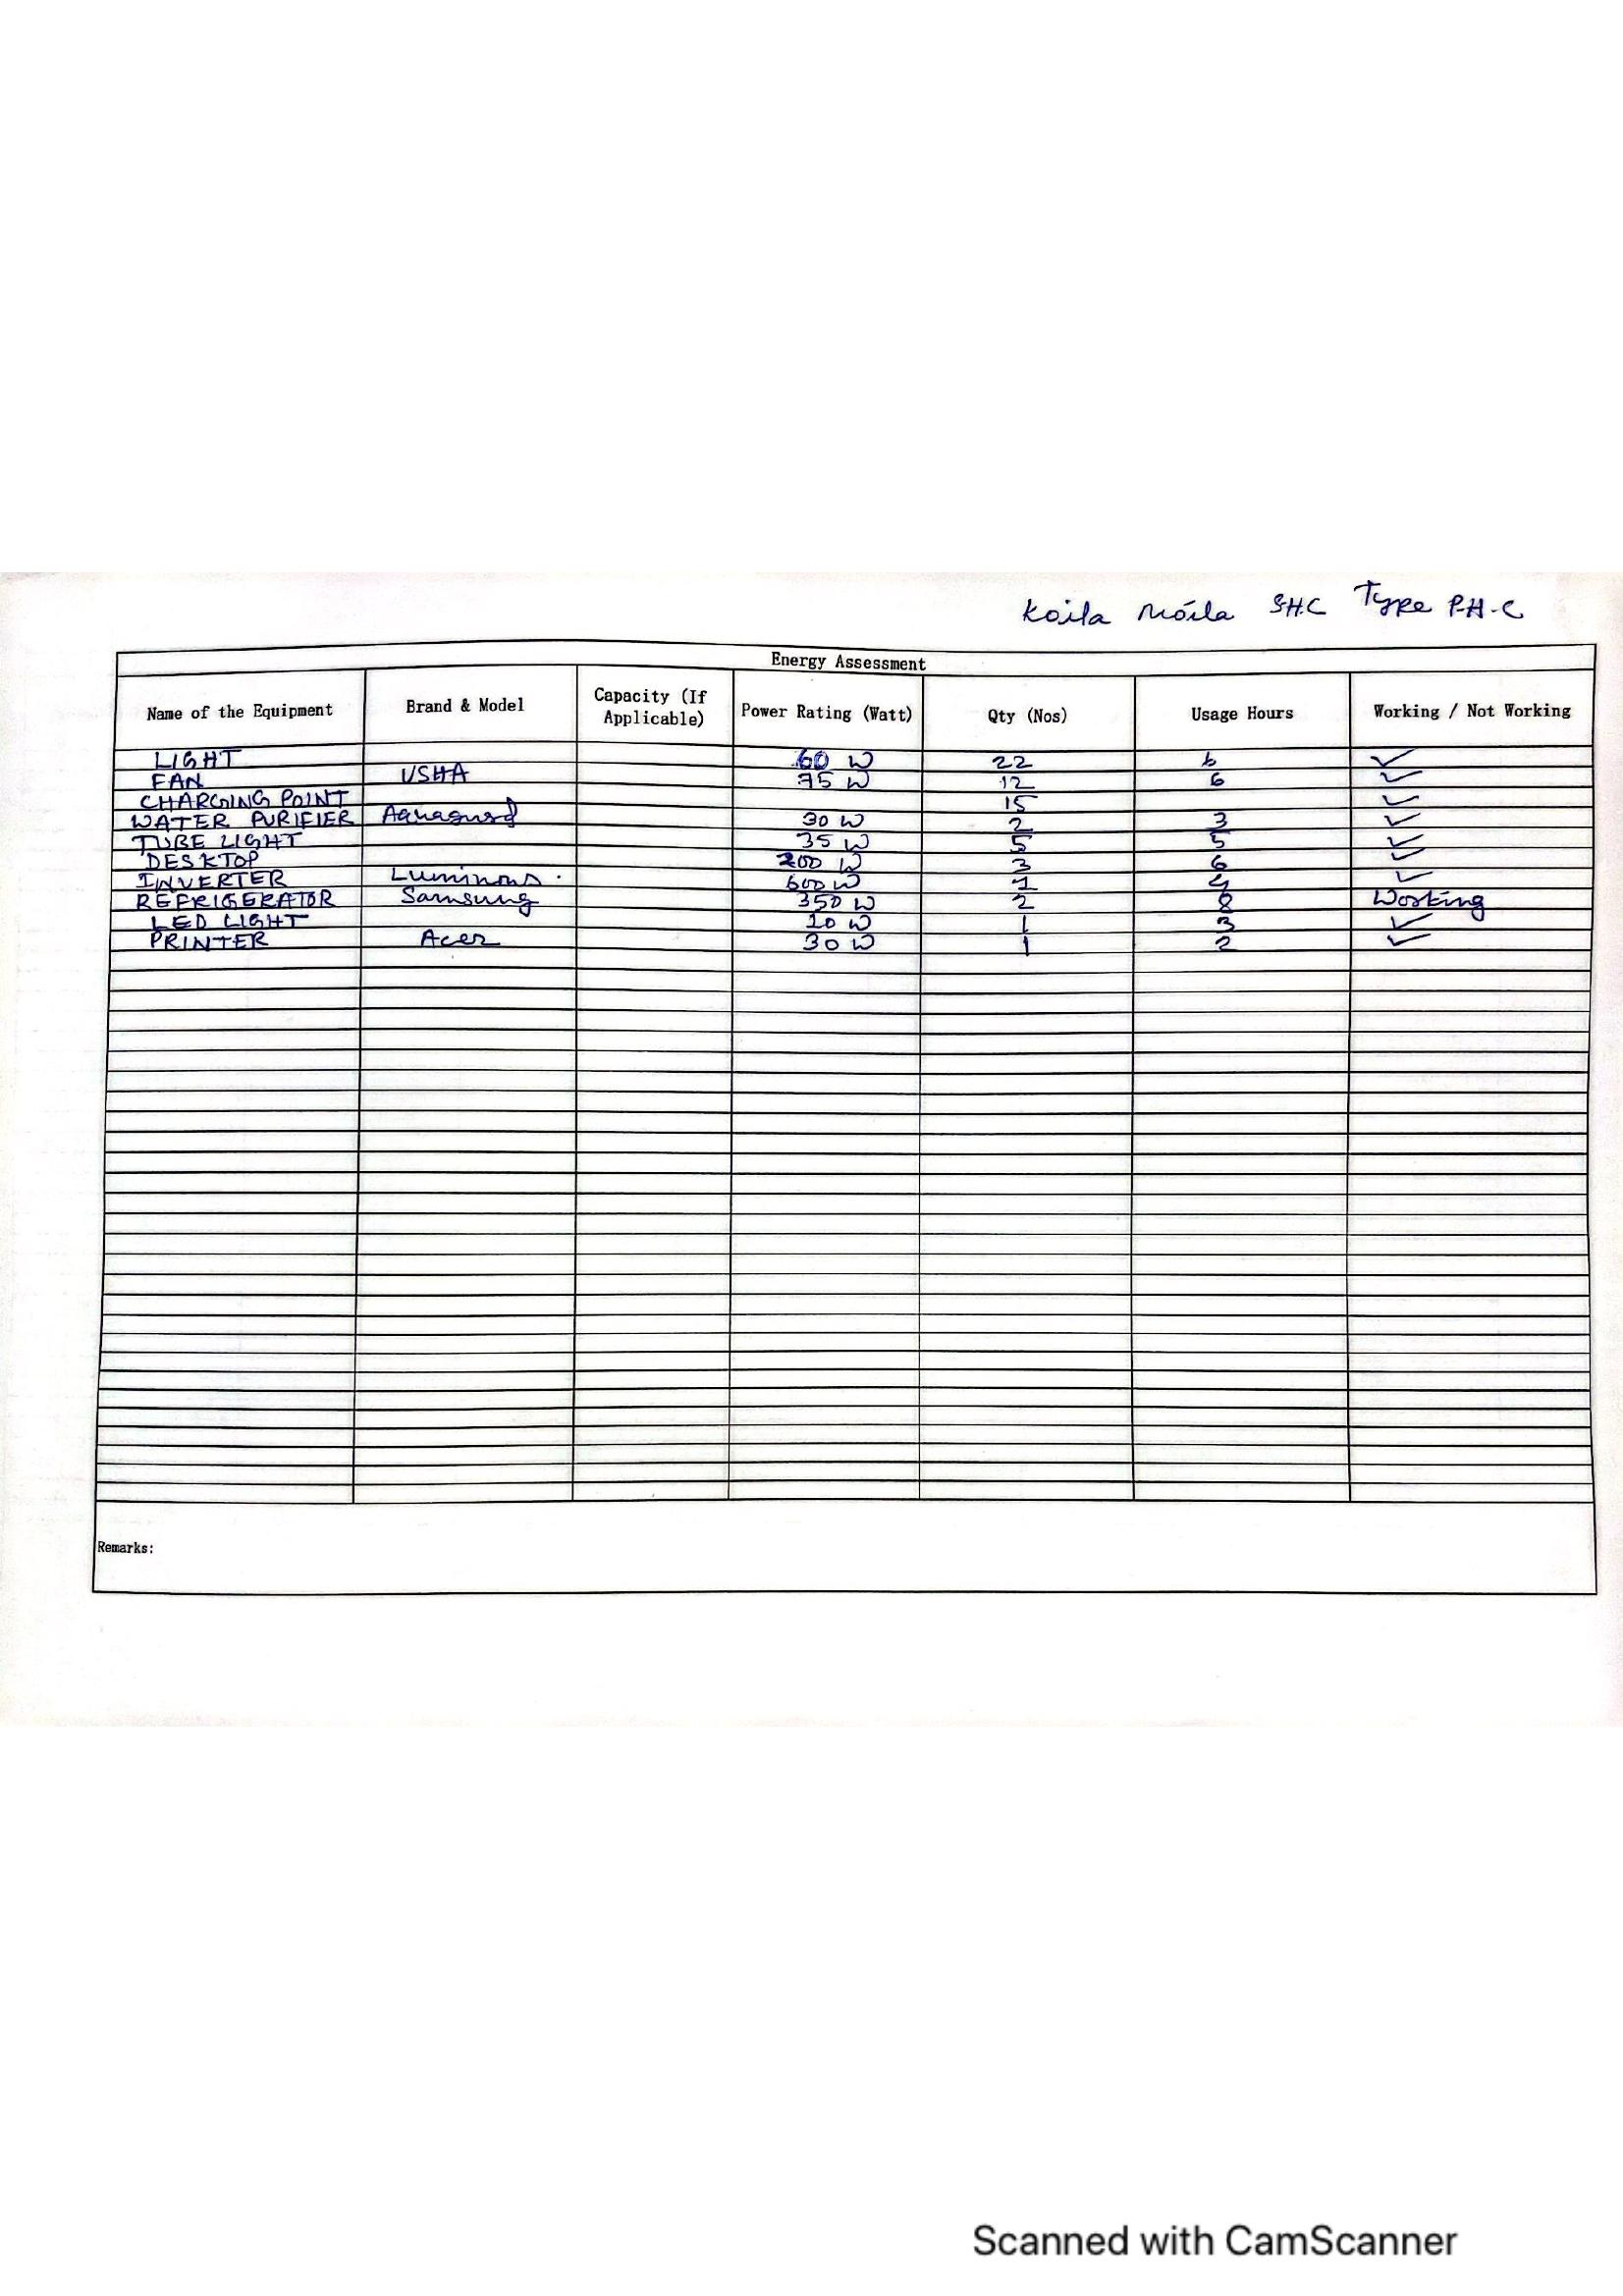 Koila Moila SHC Type P.H.C
Energy Assessment
Name of the Equipment Brand & Model Capacity (If Applicable) Power Rating (Watt) Qty (Nos) Usage Hours Working / Not Working
LIGHT 60 W 22 6 ✓
FAN USHA 75 W 12 6 ✓
CHARGING POINT 15 ✓
WATER PURIFIER 30 W 2 3 ✓
TUBE LIGHT 35 W 5 5 ✓
DESKTOP 200 W 3 6 ✓
INVERTER Luminous 600 W 1 4 ✓
REFRIGERATOR Samsung 350 W 2 8 Working
LED LIGHT 10 W 1 3 ✓
PRINTER Acer 30 W 1 2 ✓
Remarks:
Scanned with CamScanner